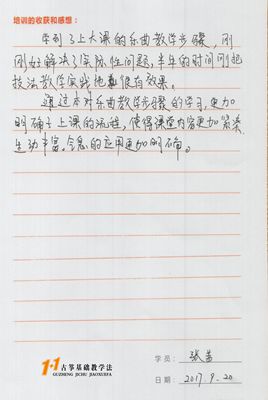 培训的收获和感想：
学到了上大课的乐曲教学步骤，刚
刚好解决了实际性问题，半年的时间刚把
技法教学实践地真很有效果。
通过本对乐曲教学步骤的学习，更加
明确了上课的流程，使得课堂内容更加紧凑
生动丰富，令急的应用更加明确。
学员：张茜
1+1古筝基础教学法
GUZHENG JICHU JIAOXUEFA
日期：2017.9.20